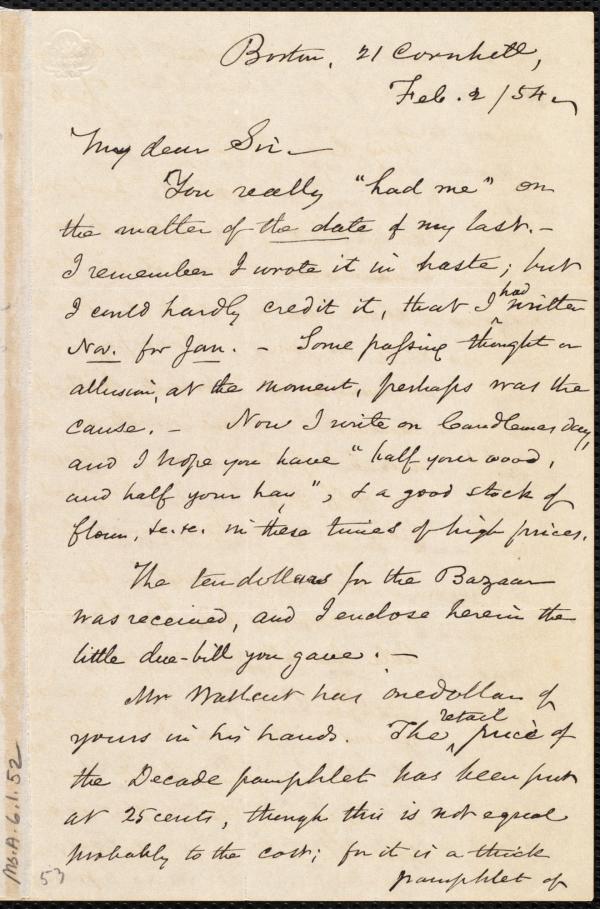 Boston, 21 Cornhill,
Feb. 2 / 54.
My dear Sir—
You really "had me" on
the matter of the date of my last.—
I remember I wrote it in haste; but
I could hardly credit it, that I had written
Nov. for Jan. — Some passing thought or
allusion, at the moment, perhaps was the
cause. — Now I write on Candlemas day,
and I hope you have "half your wood,
and half your hay", & a good stock of
flour, &c. &c. in these times of high prices.
The ten dollars for the Bazaar
was received, and I enclose herein the
little due-bill you gave. —
Mr Wallcut has one dollar of
yours in his hands. The retail price of
the Decade pamphlet has been put
at 25 cents, though this is not equal
probably to the cost; for it is a thick
pamphlet of
Ms. A. 6. 1. 52
53